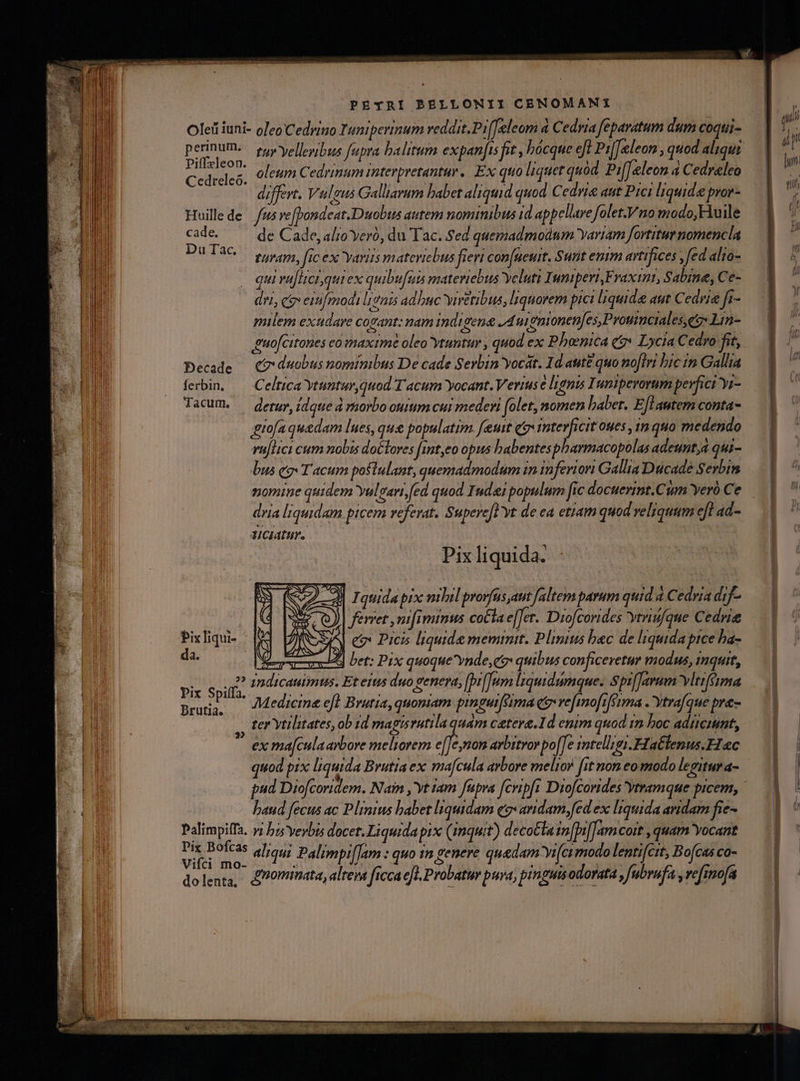 PETRI BELLONII CENOMANI
Oleū iuni- oleo Cedrino Iuniperinum reddit. Pisseleom à Cedria separatum dum coqui-
perinum. tur velleribus supra halitum expansis fit, hócque est Pisseleon, quod aliqui
Pisseleon. oleum Cedrinum interpretantur. Ex quo liquet quòd Pisseleon à Cedreleo
Cedreleō. differt. Vulgus Galliarum habet aliquid quod Cedrie aut Pici liquide pror-
Huille de sus respondeat. Duobus autem nominibus id appellare solet. Vno modo, Huile
cade. de Cade, alio verò, du Tac. Sed quemadmodum variam sortitur nomencla
Du Tac. turam, sic ex variis materiebus fieri consueuit. Sunt enim artifices, sed alio-
qui rustici, qui ex quibusuis materiebus veluti Iuniperi, Fraxini, Sabine, Ce-
dri, & eiusmodi lignis adhuc virētibus, liquorem pici liquide aut Cedrie si-
milem exudare cogant: nam indigene Auignionenses, Prouinciales, & Lin-
guoscitones eo maxime oleo vtuntur, quod ex Phœnica & Lycia Cedro fit,
Decade & duobus nominibus De cade Serbin vocāt. Id autē quo nostri hic in Gallia
serbin. Celtica vtuntur, quod Tacum vocant. Verius è lignis Iuniperorum perfici vi-
Tacum. detur, idque à morbo ouium cui mederi solet, nomen habet. Est autem conta-
giosa quedam lues, que populatim seuit & interficit oues, in quo medendo
rustici cum nobis doctores sint, eo opus habentes pharmacopolas adeunt, à qui-
bus & Tacum postulant, quemadmodum in inferiori Gallia Ducade Serbin
nomine quidem vulgari, sed quod Iudei populum sic docuerint. Cum verò Ce
dria liquidam picem referat. Superest vt de ea etiam quod reliquum est ad-
iiciatur.
Pix liquida.
Iquida pix nihil prorsus, aut saltem parum quid à Cedria dif-
ferret, nisi minus cocta esset. Dioscorides vtriúsque Cedrie
Pix liqui- & Picis liquide meminit. Plinius hæc de liquida pice ha-
da. bet: Pix quoque vnde, & quibus conficeretur modus, inquit,
” indicauimus. Et eius duo genera, spissum liquidúmque. Spissarum vtilissima
Pix Spissa. Medicine est Brutia, quoniam pinguissima & resinosissima. vtrasque pre-
Brutia. ter vtilitates, ob id magis rutila quàm cetere. Id enim quod in hoc adiiciunt,
” ex mascula arbore meliorem esse, non arbitror posse intelligi. Hactenus. Hæc
quod pix liquida Brutia ex mascula arbore melior sit non eo modo legitur a-
pud Dioscoridem. Nam, vt iam supra scripsi Dioscorides vtramque picem,
haud secus ac Plinius habet liquidam & aridam, sed ex liquida aridam fie-
Palimpissa. ri his verbis docet. Liquida pix (inquit) decocta in spissam coit, quam vocant
Pix Boscas aliqui Palimpissam: quo in genere quedam visci modo lentiscit, Boscas co-
Visci mo- gnominata, altera sicca est. Probatur pura, pinguis odorata, subrufa, resinosa
do lenta.